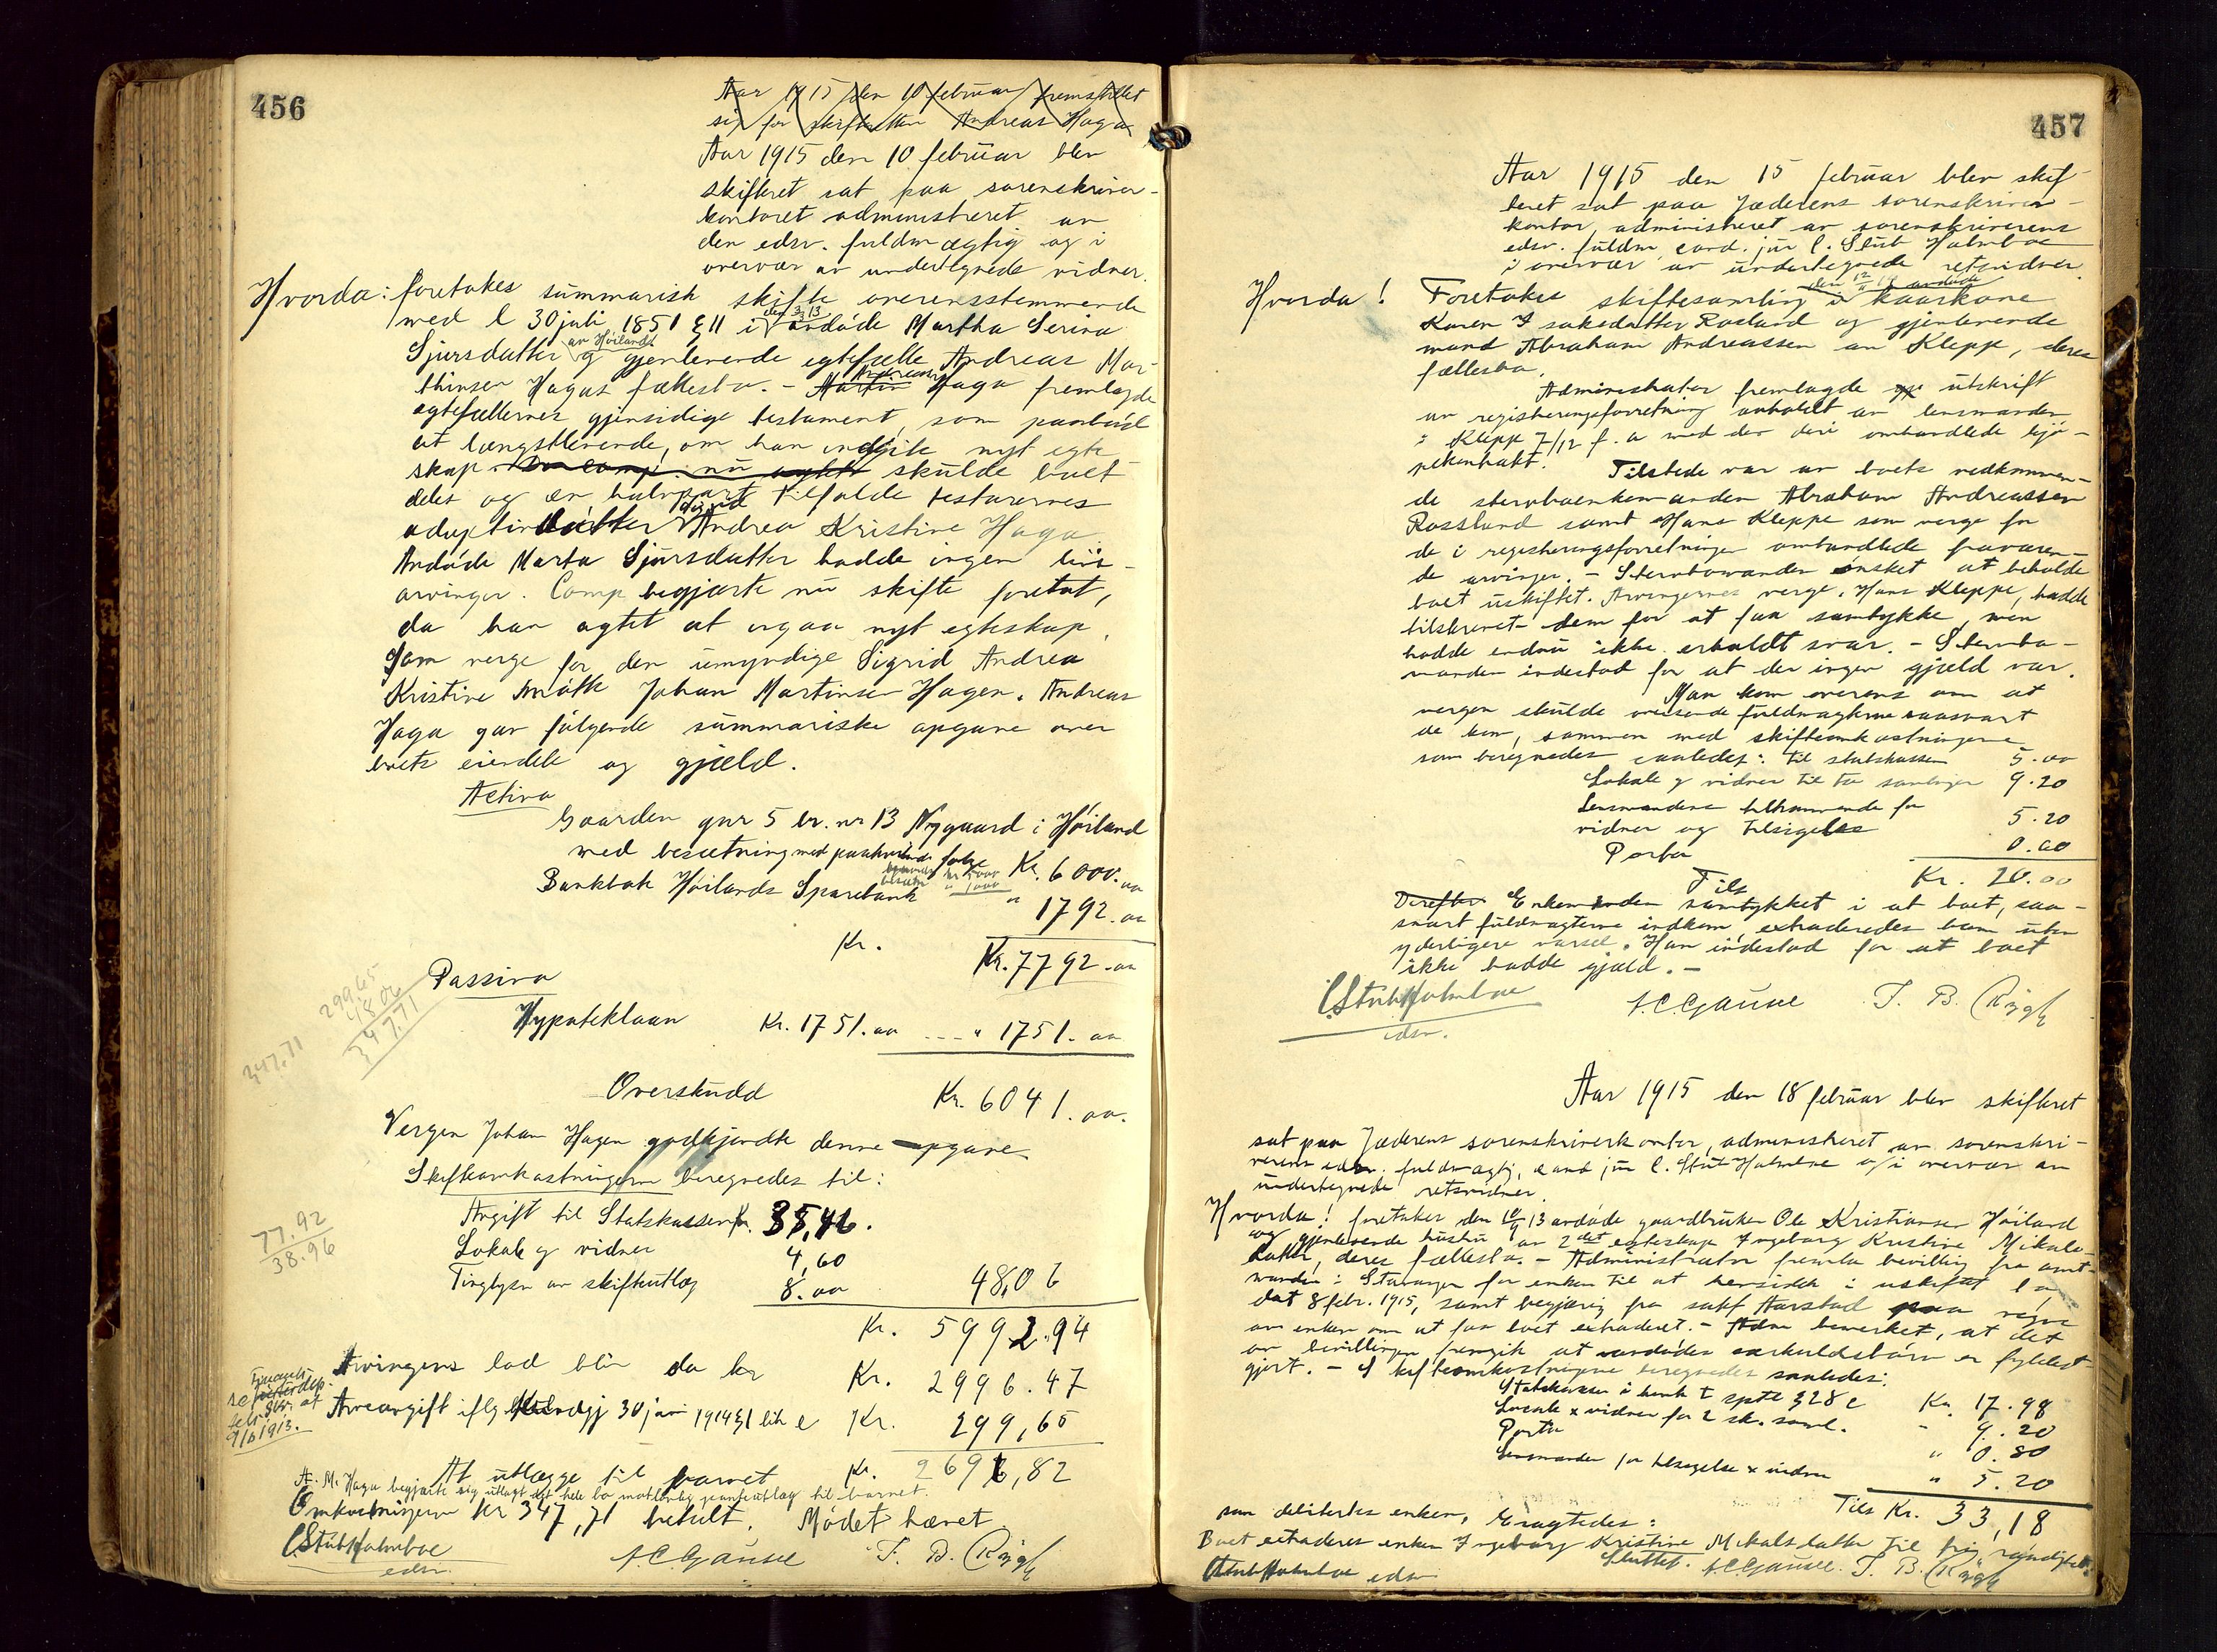 456
Aar 1915 den 10 februar fremstillet
sig for skifteretten Andreas Haga
Aar 1915 den 10 februar blev
skifteret sat paa sorenskriver-
kontoret administreret av
den edsv. fuldmægtig og i
overvær av undertegnede vidner.
Hvorda: foretokes summarisk skifte overensstemmende
med l 30 juli 1851 § 11 i den avdøde Martha Serina
Sjursdatter av Høiland og gjenlevende egtefælle Andreas Mar-
thinsen Hagas fællesbo. - Martin Andreas Haga fremlagde
egtefællernes gjensidige testament, som paabød
at længstlevende, om han indgik nyt egte-
skap skulde boet
deles og en halvpart tilfalde testatorernes
adoptivdatter Sigrid Andrea Kristine Haga.
Avdøde Marta Sjursdatter hadde ingen livs-
arvinger. Comp begjærte nu skifte foretat,
da han agtet at ingaa nyt egteskap.
Som verge for den umyndige Sigrid Andrea
Kristine møtte Johan Martinsen Hagen. Andreas
Haga gav følgende summariske opgave over
boets eiendele og gjæld.
Activa
Gaarden gnr 5 br. nr 13 Nygaard i Høiland
med besætning med paahvilende
Kr. 6000.00
Bankbok Høilands Sparebank " 1792.00
Kr. Kr. 7792.00
Passiva
Hypoteklaan Kr. 1751.00 ... " 1751.00
299.65
48.06
347.71
347.71
Overskudd Kr. 6041.00.
Vergen Johan Hagen godkjendte denne opgave.
Skifteomkostningerne beregnedes til:
Avgift til Statskassen Kr. 35,46.
Lokale og vidner 4,60
Tinglysn av skifteutlæg 8.00 48,06
77.92
38.96
Kr. 5992.94
Arvingens lod blir da kr Kr. 2996.47
Arveavgift iflg 30 juni 1914 § 1 lit e Kr. 299,65
9/6 1913.
At utlægge til barnet Kr. 2696,82
A. M. Haga begjærte sig utlagt det hele bo mot panteutlæg til barnet.
Omkostningerne kr 347,71 betalt. Mødet hævet.
C Stub Holmboe
edsv.
A.C. Gausel T. B. Rygh
457
Aar 1915 den 15 februar blev skif-
teret sat paa Jæderens sorenskriver-
kontor, administreret av sorenskriverens
edsv. fuldm. cand. jur C. Stub Holmboe
i overvær av undertegnede retsvidner.
Hvorda! Foretokes skiftesamling i den avdøde kaarkone
Karen Isaksdatter Rosland og gjenlevende
mand Abraham Andreassen av Klepp, deres
fællesbo.
Administrator fremlagde utskrift
av registreringsforretning avholdt av lensmanden
i Klepp 7/12 f. a med der deri omhandlede skjø-
Tilstede var av boets vedkommen-
de stervboenkemanden Abraham Andreassen
Rossland samt Hans Kleppe som verge for
de i registreringsforretningen omhandlede fraværen-
de arvinger. - Stervbomanden ønsket at beholde
boet uskiftet. Arvingernes verge, Hans Kleppe, hadde
tilskrevet dem for at faa samtykke, men
hadde endnu ikke erholdt svar. - Stervbo-
manden indestod for at der ingen gjæld var.
Man kom overens om at
vergen skulde oversende fuldmagterne saasnart
de kom, sammen med skifteomkostningerne
som beregnedes saaledes: til statskassen 5.00
Lokale og vidner til to samlinger 9.20
Lensmandens tilkommende for
vidner og tilsigelse 5.20
Porto 0.60
Tils Kr. 20.00
Derefter Enkemanden samtykket i at boet, saa-
snart fuldmagterne indkom, extraderedes ham uten
yderligere varsel. Han indestod for at boet
ikke hadde gjæld. -
C Stub Holmboe
edsv.
A.C. Gausel T. B. Rygh
Aar 1915 den 18 februar blev skifteret
sat paa Jæderens sorenskriverkontor, administreret av sorenskri-
verens edsv. fuldmægtig, cand jur C. Stub Holmboe og i overvær av
undertegnede retsvidner.
Hvorda! foretokes den 10/9 13 avdøde gaardbruker Ole Kristiansen Høiland
og gjenlevende hustru av 2det egteskap Ingeborg Kristine Mikals-
datter, deres fællesbo. - Administrator fremla bevilling fra amt-
manden i Stavanger for enken til at hensidde i uskiftet bo,
dat 8 febr. 1915, samt begjæring fra sakf Aarstad paa vegne
av enken om at faa boet extraderet. - Adm bemerket, at det
av bevillingen fremgik at avdødes særkuldsbørn er fyldest-
gjort. - Skifteomkostningerne beregnedes saaledes:
Statskassen i henh t sptl § 28 c Kr. 17.98
Locale x vidner for 2 sk. saml. - 9.20
Porto " 0.80
Lensmanden for tilsigelse x vidner " 5.20
Tils Kr. 33,18
som debitertes enken. Eragtedes:
Boet extraderes enken Ingeborg Kristine Mikalsdatter til fri raadighet.
Sluttet. A.C. Gausel. T. B. Rygh
C Stub Holmboe edsv